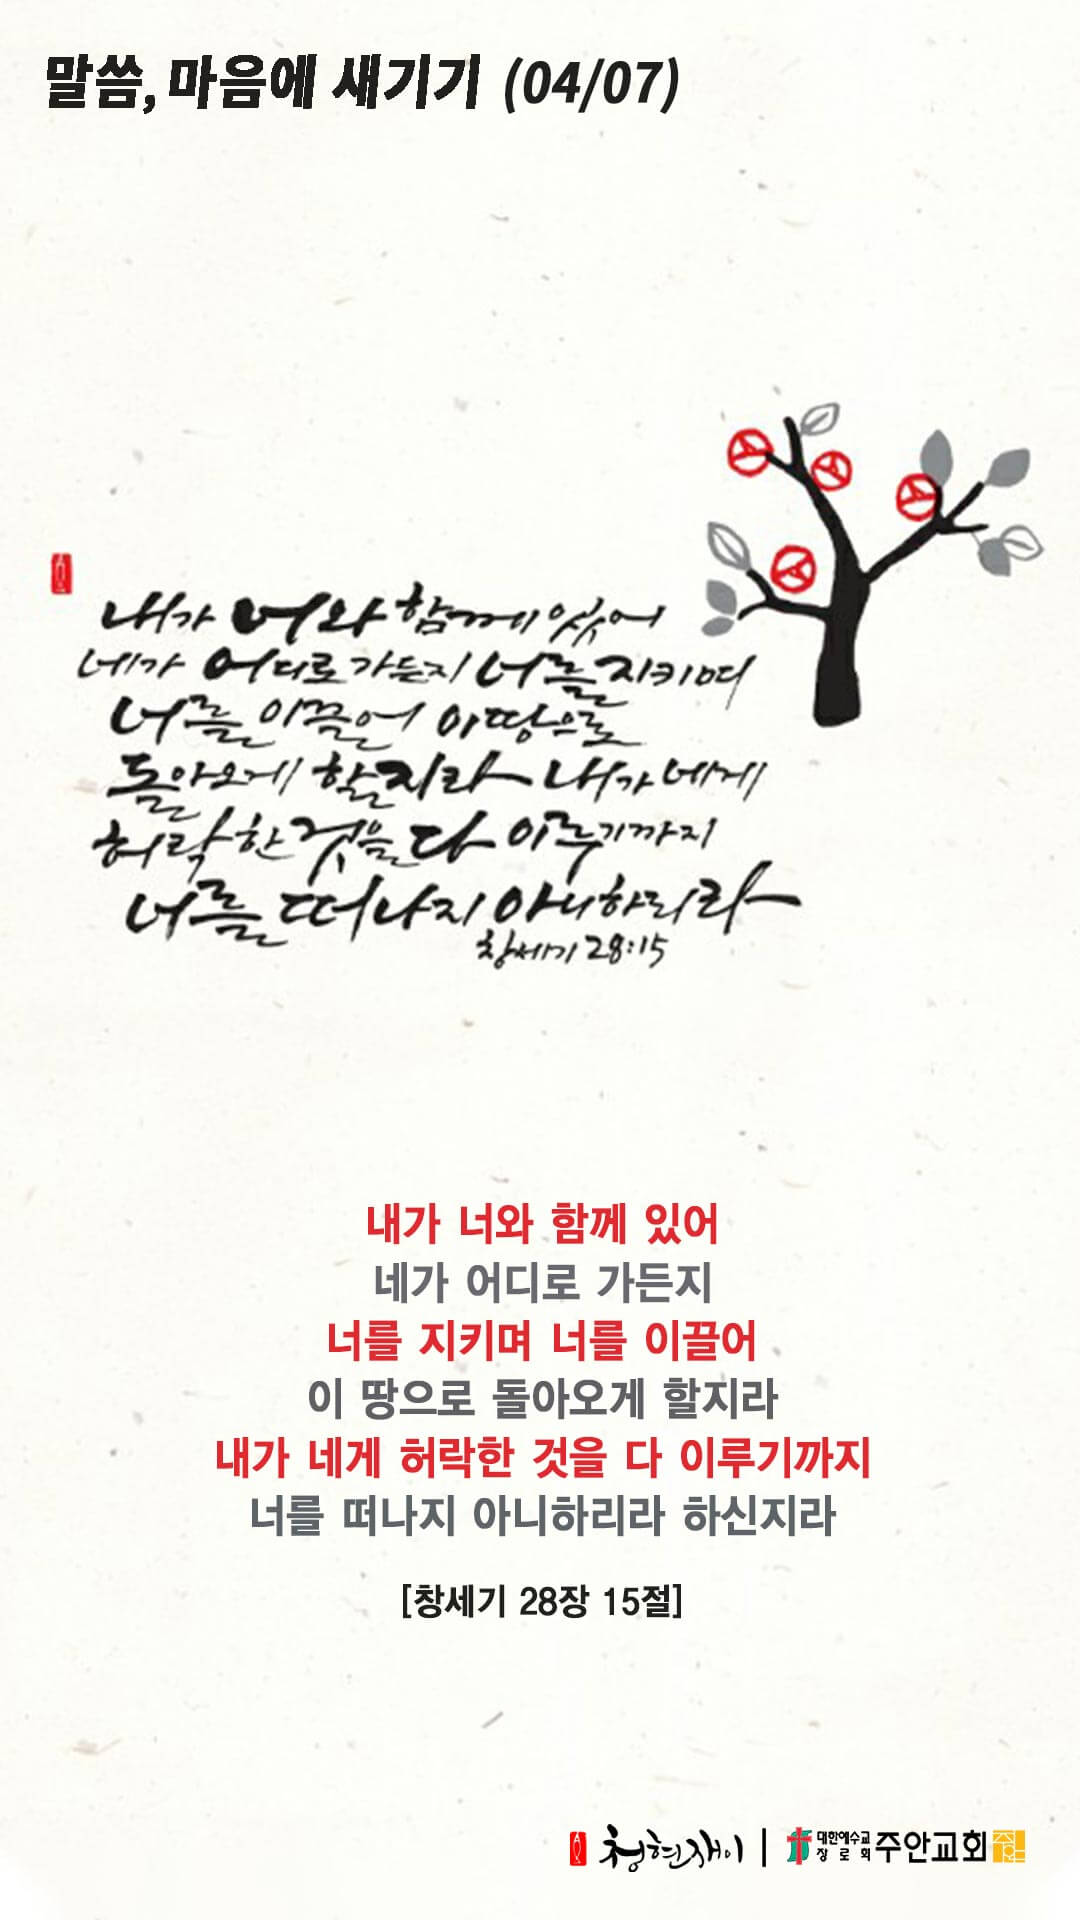 말씀, 마음에 새기기 (04/07)
내가 너와 함께 있어
네가 어디로 가든지 너를 지키며
너를 이끌어 이 땅으로
돌아오게 할지라 내가 네게
허락한 것을 다 이루기까지
너를 떠나지 아니하리라
창세기 28:15
내가 너와 함께 있어
네가 어디로 가든지
너를 지키며 너를 이끌어
이 땅으로 돌아오게 할지라
내가 네게 허락한 것을 다 이루기까지
너를 떠나지 아니하리라 하신지라
[창세기 28장 15절]
청현재이 | 대한예수교 장로회 주안교회